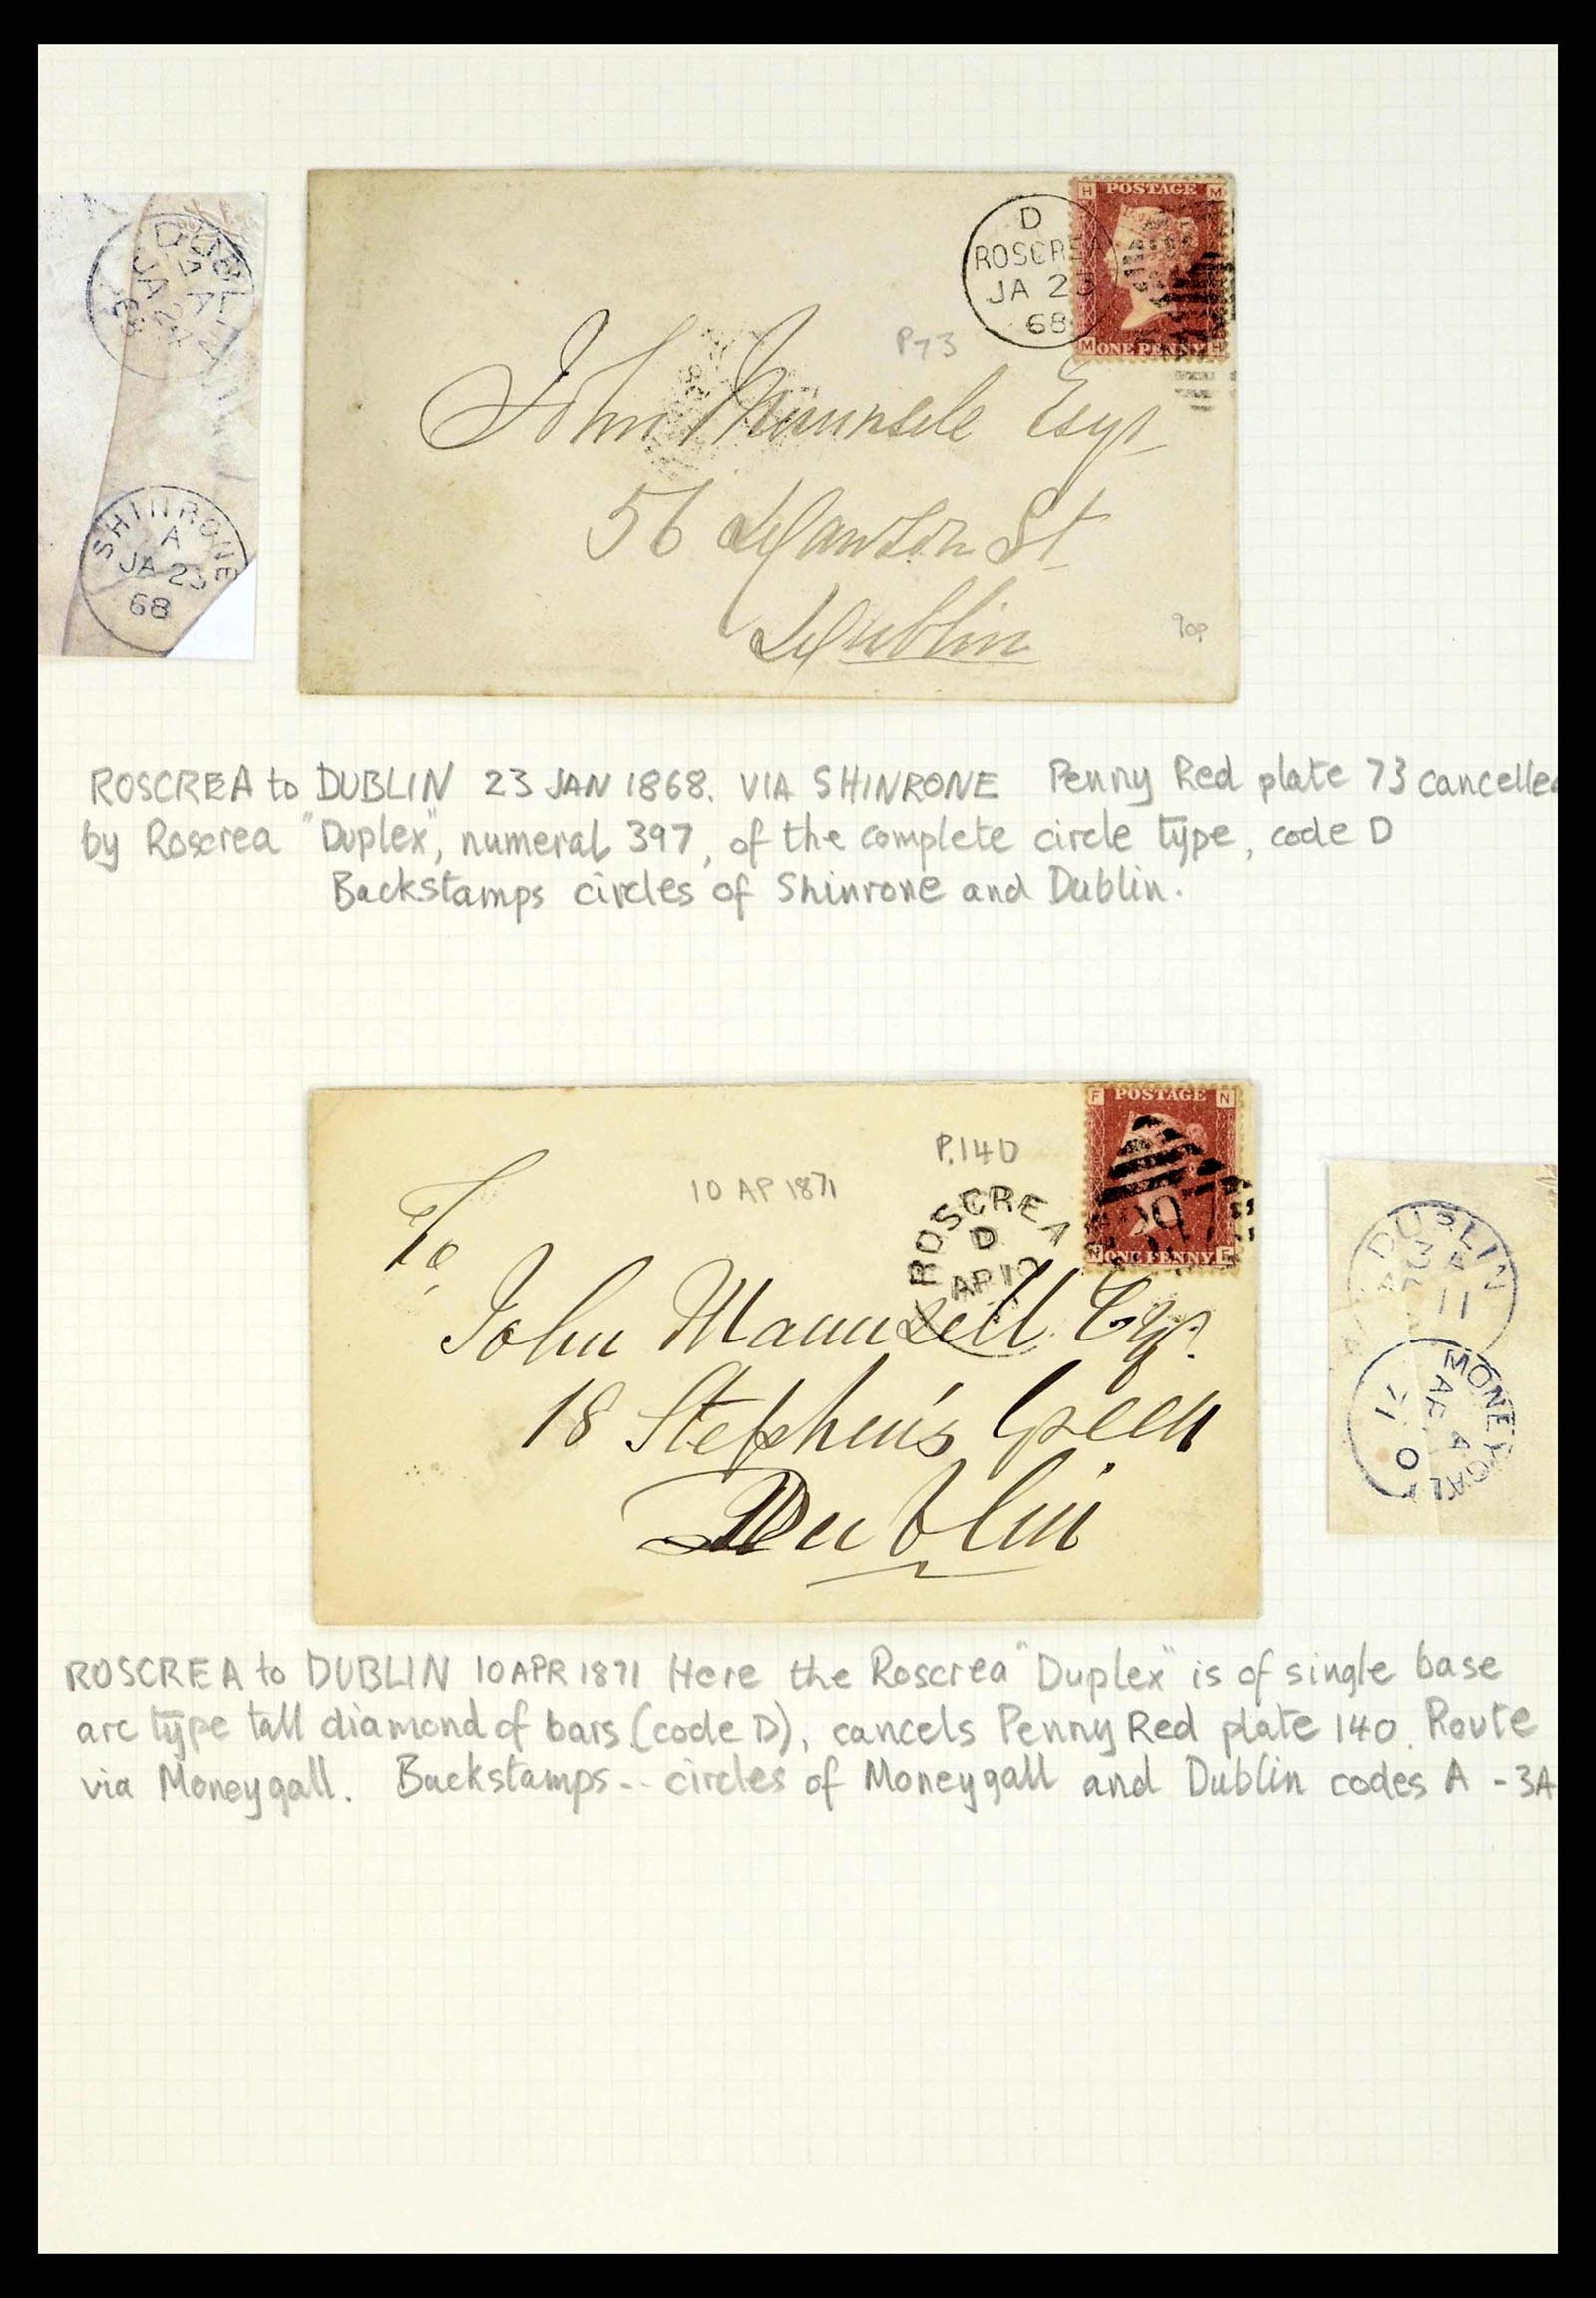 H POSTAGE M
D
ROSCREA
JA 23
68
M ONE PENNY H
P73
John Maunsele Esqr
56 Dawson St
Dublin
90p
DUBLIN
JA 24
68
SHINRONE
A
JA 23
68
ROSCREA to DUBLIN 23 JAN 1868. VIA SHINRONE Penny Red plate 73 cancelled
by Roscrea "Duplex", numeral 397, of the complete circle type, code D
Backstamps circles of Shinrone and Dublin.
F POSTAGE N
N ONE PENNY F
P.140
10 AP 1871
ROSCREA
D
AP 10
To
John Maunsell Esqr.
18 Stephen's Green
Dublin
DUBLIN
3 A
11
MONEYGALL
A
AP
71
ROSCREA to DUBLIN 10 APR 1871 Here the Roscrea "Duplex" is of single base
arc type tall diamond of bars (code D), cancels Penny Red plate 140. Route
via Moneygall. Backstamps-- circles of Moneygall and Dublin codes A - 3A